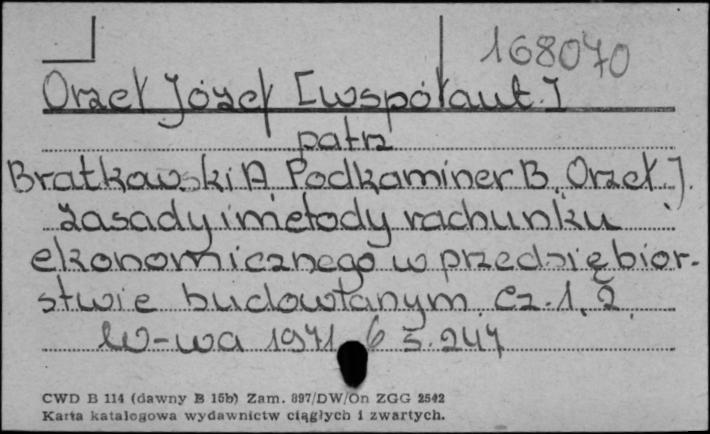 168070
Orzeł Józef [współaut.]
patrz
Bratkowski A. Podkaminer B. Orzeł J.
Zasady i metody rachunku
ekonomicznego w przedsiębior-
stwie budowlanym. Cz. 1, 2
W-wa 1971 6 s. 247
CWD B 114 (dawny B 15b) Zam. 897/DW/On ZGG 2542
Karta katalogowa wydawnictw ciągłych i zwartych.